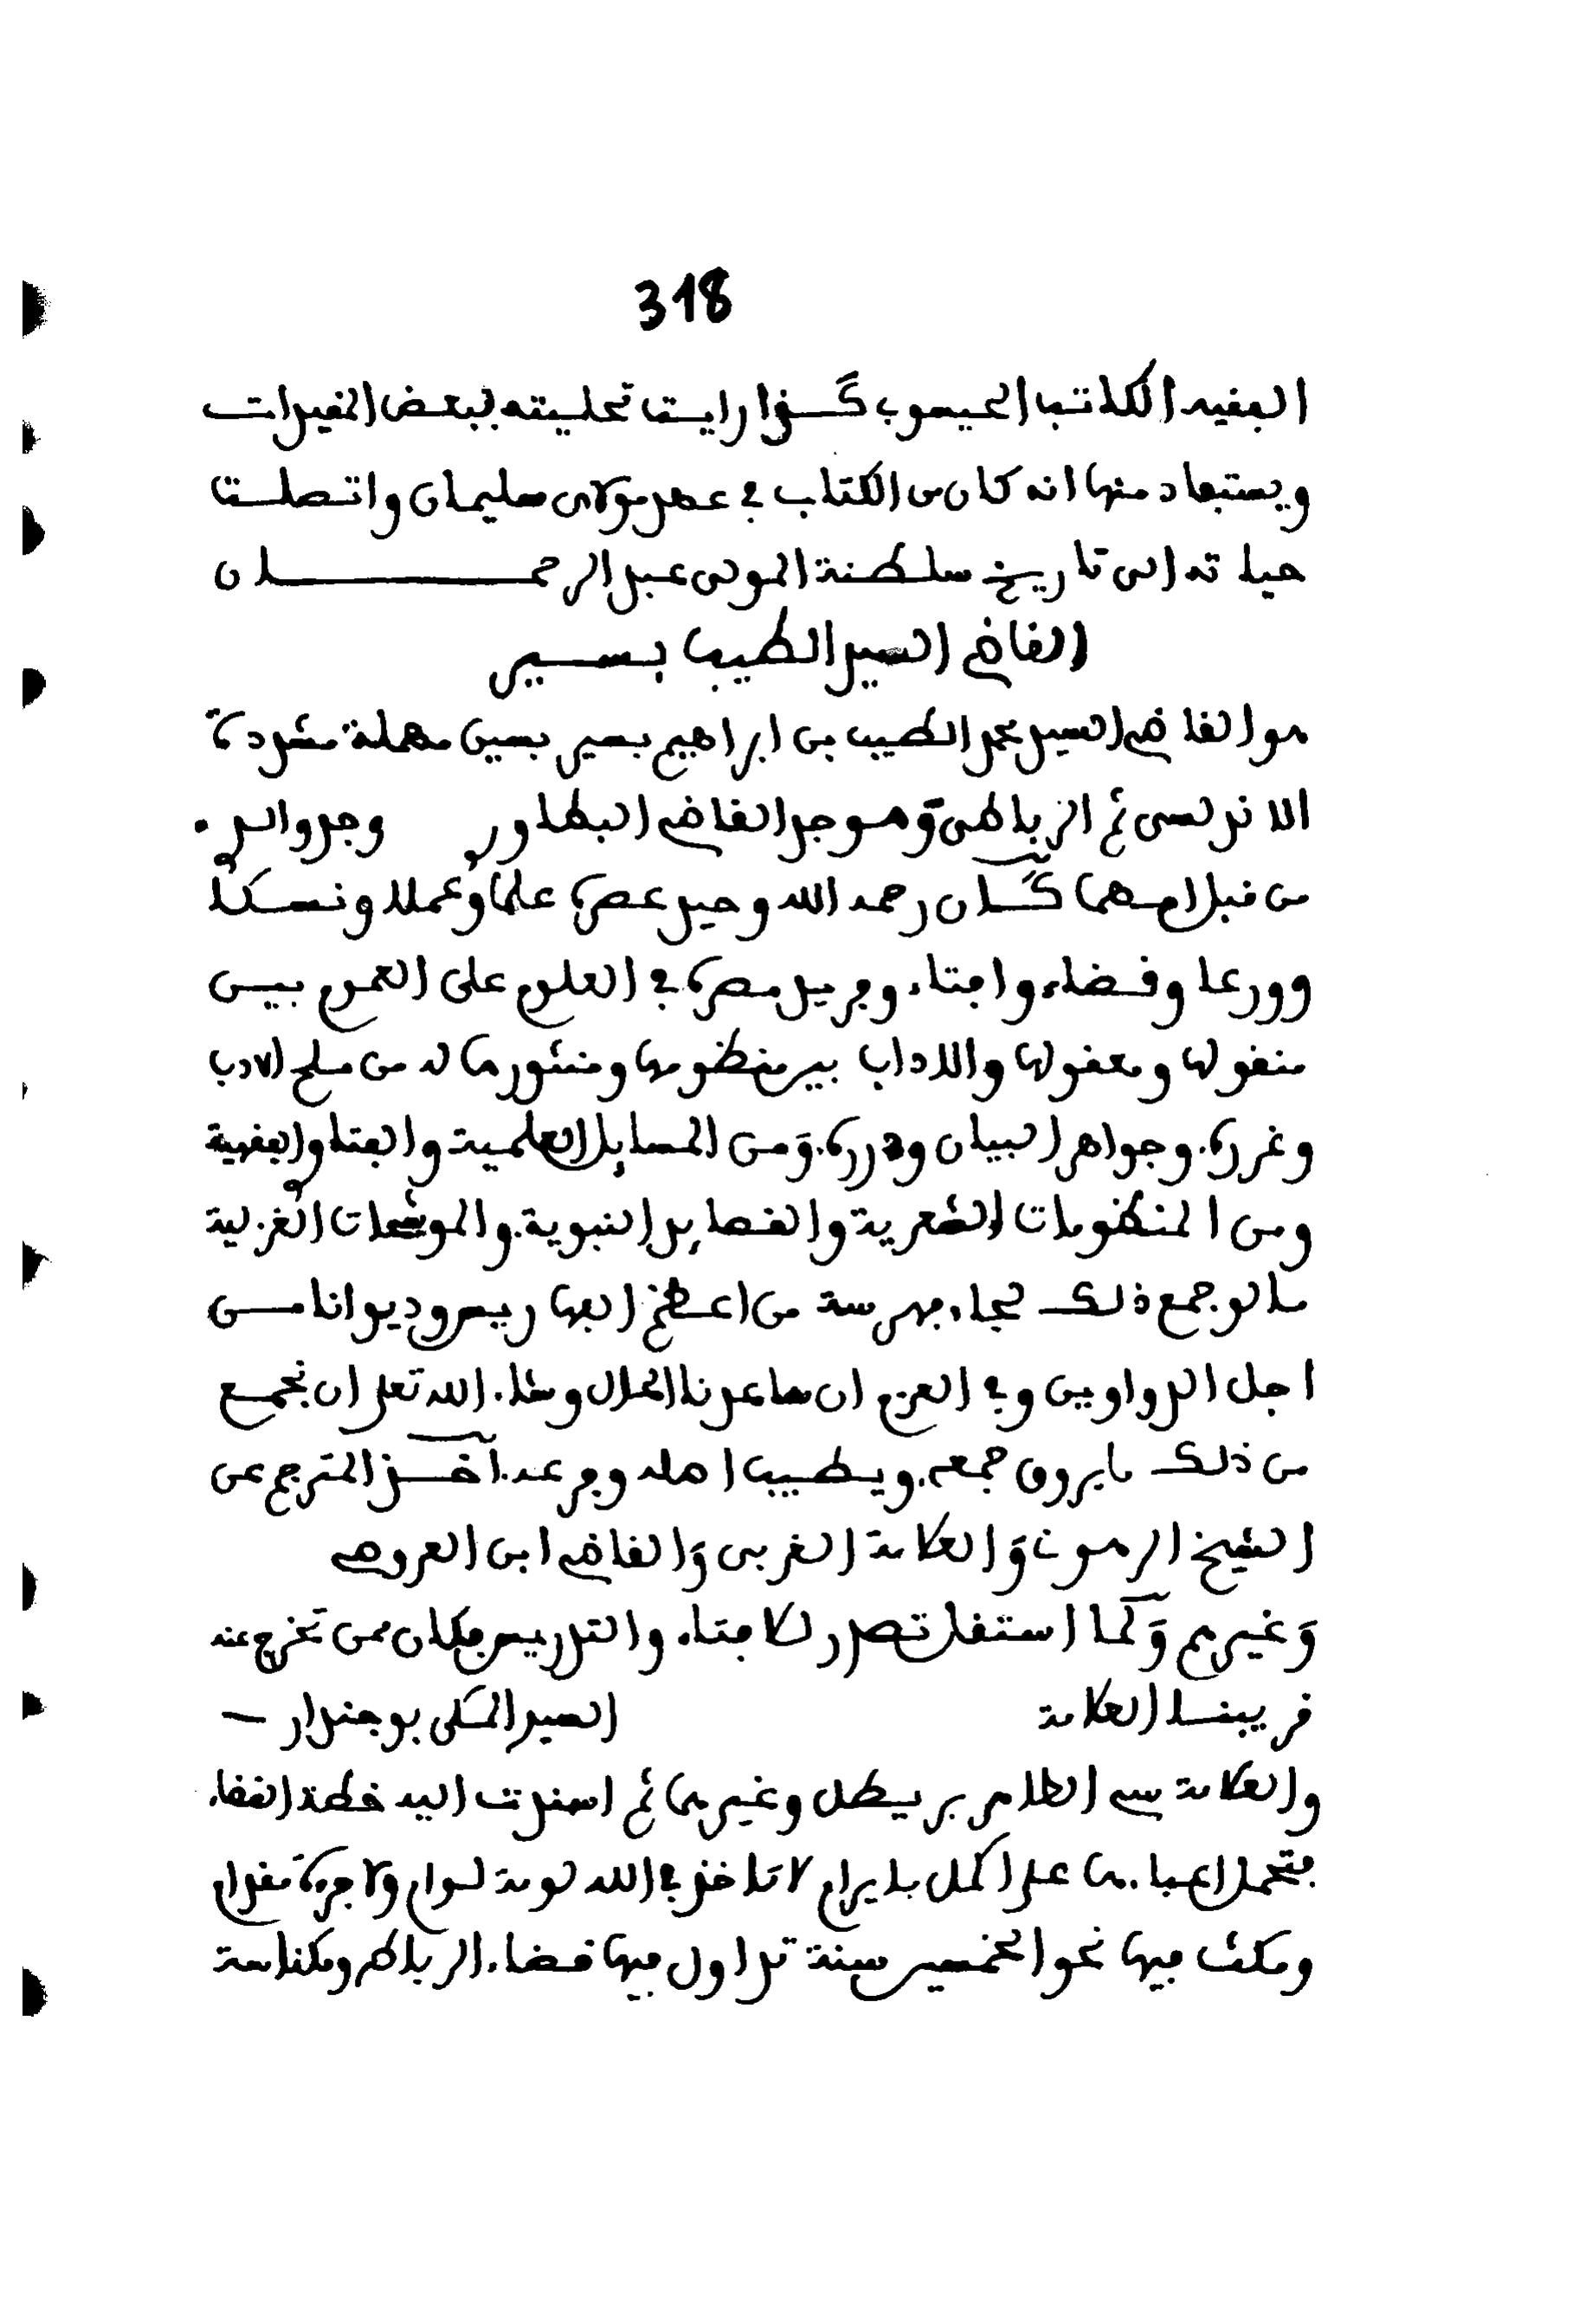 318
الفقيه الكاتب الحيسوب كذا رايت تحليته ببعض التقييدات
ويستفاد منها انه كان من الكتاب في عصر مولاى سليمان واتصلت
حياته الى تاريخ سلطنة المولى عبد الرحمان
القاضى السيد الطيب بسير
هو القاضى السيد محمد الطيب بن ابراهيم بسير بسين مهملة مشددة
الاندلسى ثم الرباطى وهو جد القاضى البطاورى وجد والدى
من قبل امهما كان رحمه الله وحيد عصره علما وعملا ونسكا
وورعا وقضاء وافتاء وفريد مصره في العلوم على العموم بين
منقولها ومعقولها والاداب بين منظومها ومنثورها له من ملح الادب
وغرره. وجواهر البيان ودرره. ومن المسايل العلمية والفتاوى الفقهية
ومن المنظومات الشعرية والقصايد النبوية. والموشحات الغزلية
ما لو جمع ذلك لجاء فهرسة من اعظم الفهاريس وديوانا مــن
اجل الدواوين وفي العزم ان ساعدنا الحال وشاء الله تعلى ان نجمع
من ذلك ما يروق جمعه. ويطيب اهله وفرعه. اخــذ المترجم عن
الشيخ الرهونى والعلامة الغربى والقاضى ابن العروصى
وغيرهم وكما استقل تصدر للافتاء والتدريس فكان ممن تخرج عنه
قريبنــا العلامة السيد المكى بوجندار —
والعلامة سى الطاهر بريطل وغيرهما ثم اسندت اليه خطة القضاء
فتحمل اعباءها على اكمل ما يرام لا تاخذه في الله لومة لوام ولا حرمة مقدام
ومكث فيها نحو الخمسين سنة تداول فيها قضاء الرباط ومكناسة